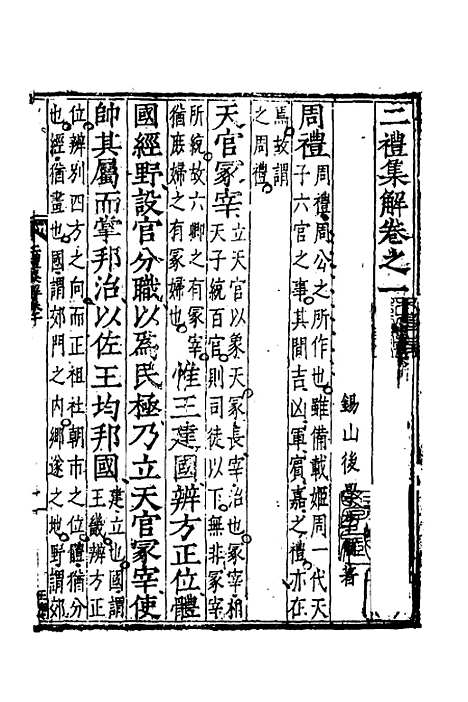 三禮集解卷之一
錫山後學 著
周禮 周禮周公之所作也雖備載姬周一代天
子六官之事其間吉凶軍賓嘉之禮亦在
焉故謂
之周禮
天官冢宰 立天官以象天冢長宰治也冢宰相
天子統百官則司徒以下無非冢宰
所統故六卿之有冢宰
猶庶婦之有冢婦也
惟王建國辨方正位體
國經野設官分職以爲民極乃立天官冢宰使
帥其屬而掌邦治以佐王均邦國 建立也國謂
王畿辨方正
位辨別四方之向而正祖社朝市之位體猶分
也經猶畫也國謂郊門之內鄉遂之地野謂郊